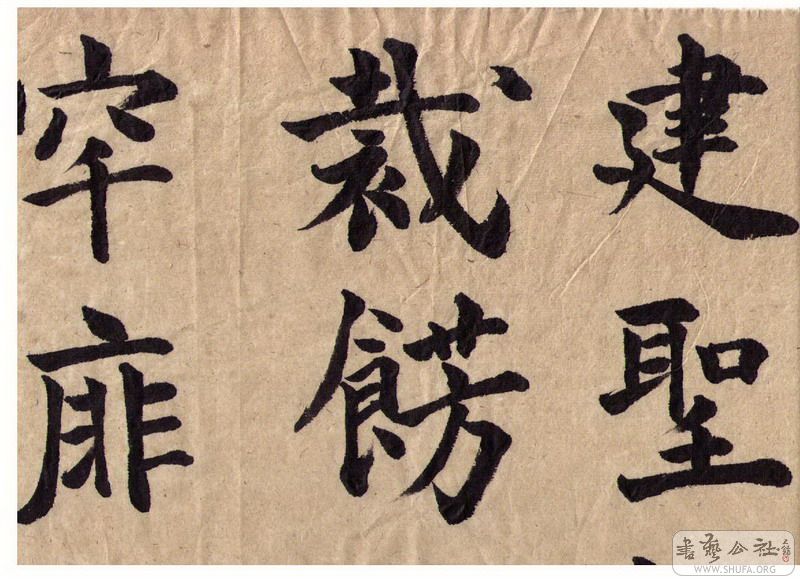 建聖
裁餝
罕
書藝公社
WWW.SHUFA.ORG